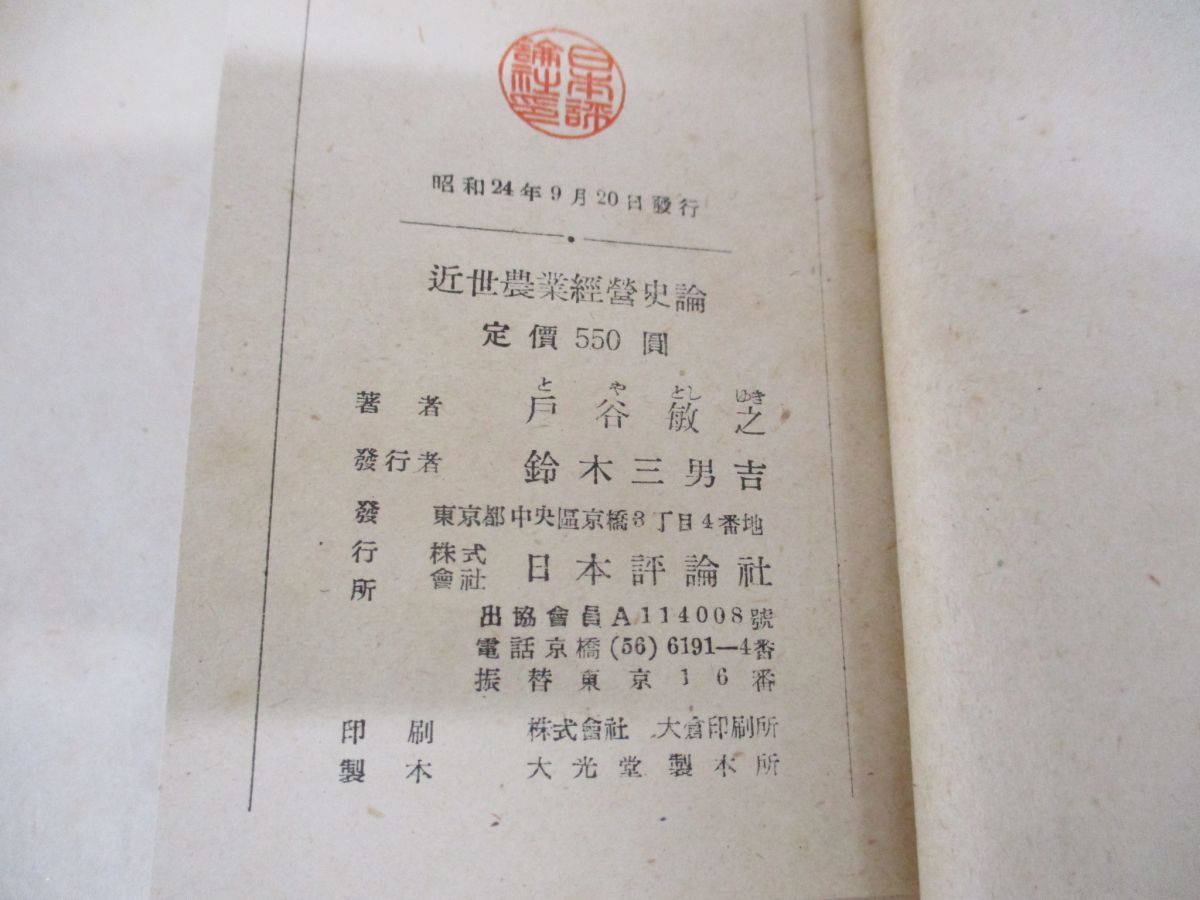 日本評論社印
昭和24年9月20日發行
近世農業經營史論
定價 550 圓
と や とし ゆき
著者 戸谷敏之
發行者 鈴木三男吉
發行所 東京都中央區京橋3丁目4番地
株式會社 日本評論社
出協會員A114008號
電話京橋(56)6191—4番
振替東京16番
印刷 株式會社 大倉印刷所
製本 大光堂製本所